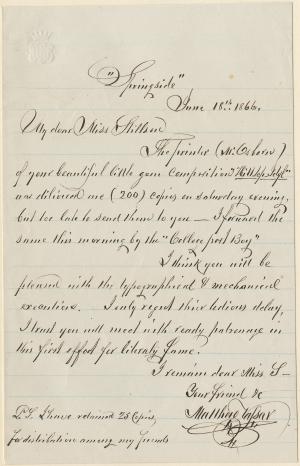 "Springside"
June 18th 1866,
My dear Miss
The Printer (Mr. Osborn)
of your beautiful little gem composition "Hilltop Idyl"
has delivered me (200) copies on Saturday evening,
but too late to send them to you — I forward the
same this morning by the "College post Boy"
I think you will be
pleased with the typographical & mechanical
execution. I only regret this tedious delay,
I trust you will meet with ready patronage in
this first effort for literary fame.
I remain dear Miss S—
Your friend &c
Matthew Vassar
P.S. I have retained 25 Copies
for distribution among my friends